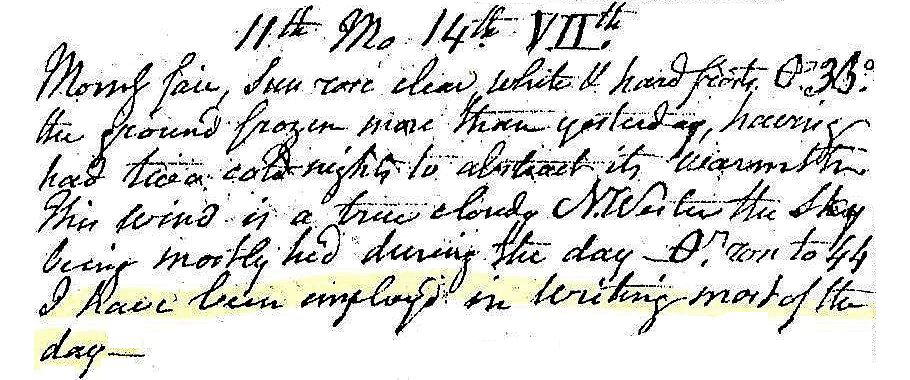 11th Mo 14th VIIth.
Morng fair, Sun rose clear, white & hard frost, Ɵr 36°.
the ground frozen more than yesterday, having
had two cold nights to abstract its warmth
This wind is a true cloudy N.Wester the Sky
being mostly hid during the day — Ɵr. ron to 44
I have been employ'd in writing most of the
day—